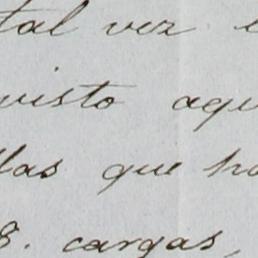 tal vez
visto aqu
llas que ha
8. cargas,